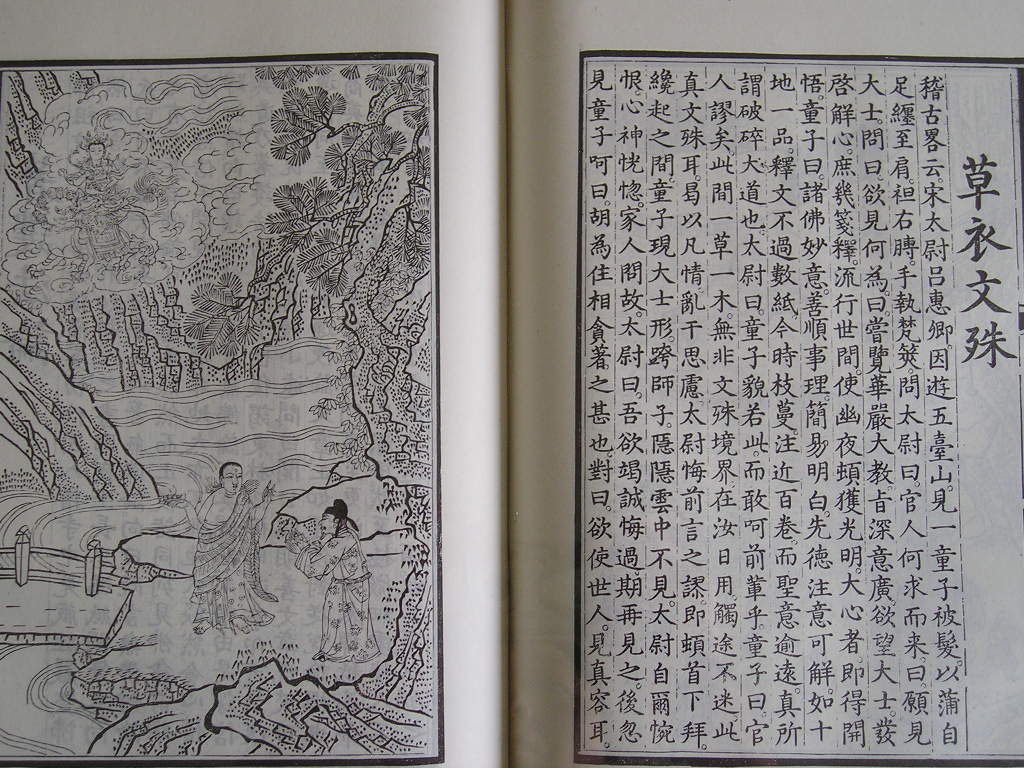 草衣文殊
稽古畧云宋太尉呂惠卿因遊五臺山見一童子被髮以蒲自
足纏至肩袒右膊手執梵筴問太尉曰官人何求而來曰願見
大士問曰欲見何為曰嘗覽華嚴大教旨深意廣欲望大士發
啓解心庶幾箋釋流行世間使幽夜頓獲光明大心者即得開
悟童子曰諸佛妙意善順事理簡易明白先德注意可解如十
地一品釋文不過數紙今時枝蔓注近百卷而聖意逾遠真所
謂破碎大道也太尉曰童子貌若此而敢呵前輩乎童子曰官
人謬矣此間一草一木無非文殊境界在汝日用觸途不迷此
真文殊耳曷以凡情亂干思慮太尉悔前言之謬即頓首下拜
纔起之間童子現大士形跨師子隱隱雲中不見太尉自爾惋
恨心神恍惚家人問故太尉曰吾欲竭誠悔過期再見之後忽
見童子呵曰胡為住相貪著之甚也對曰欲使世人見真容耳